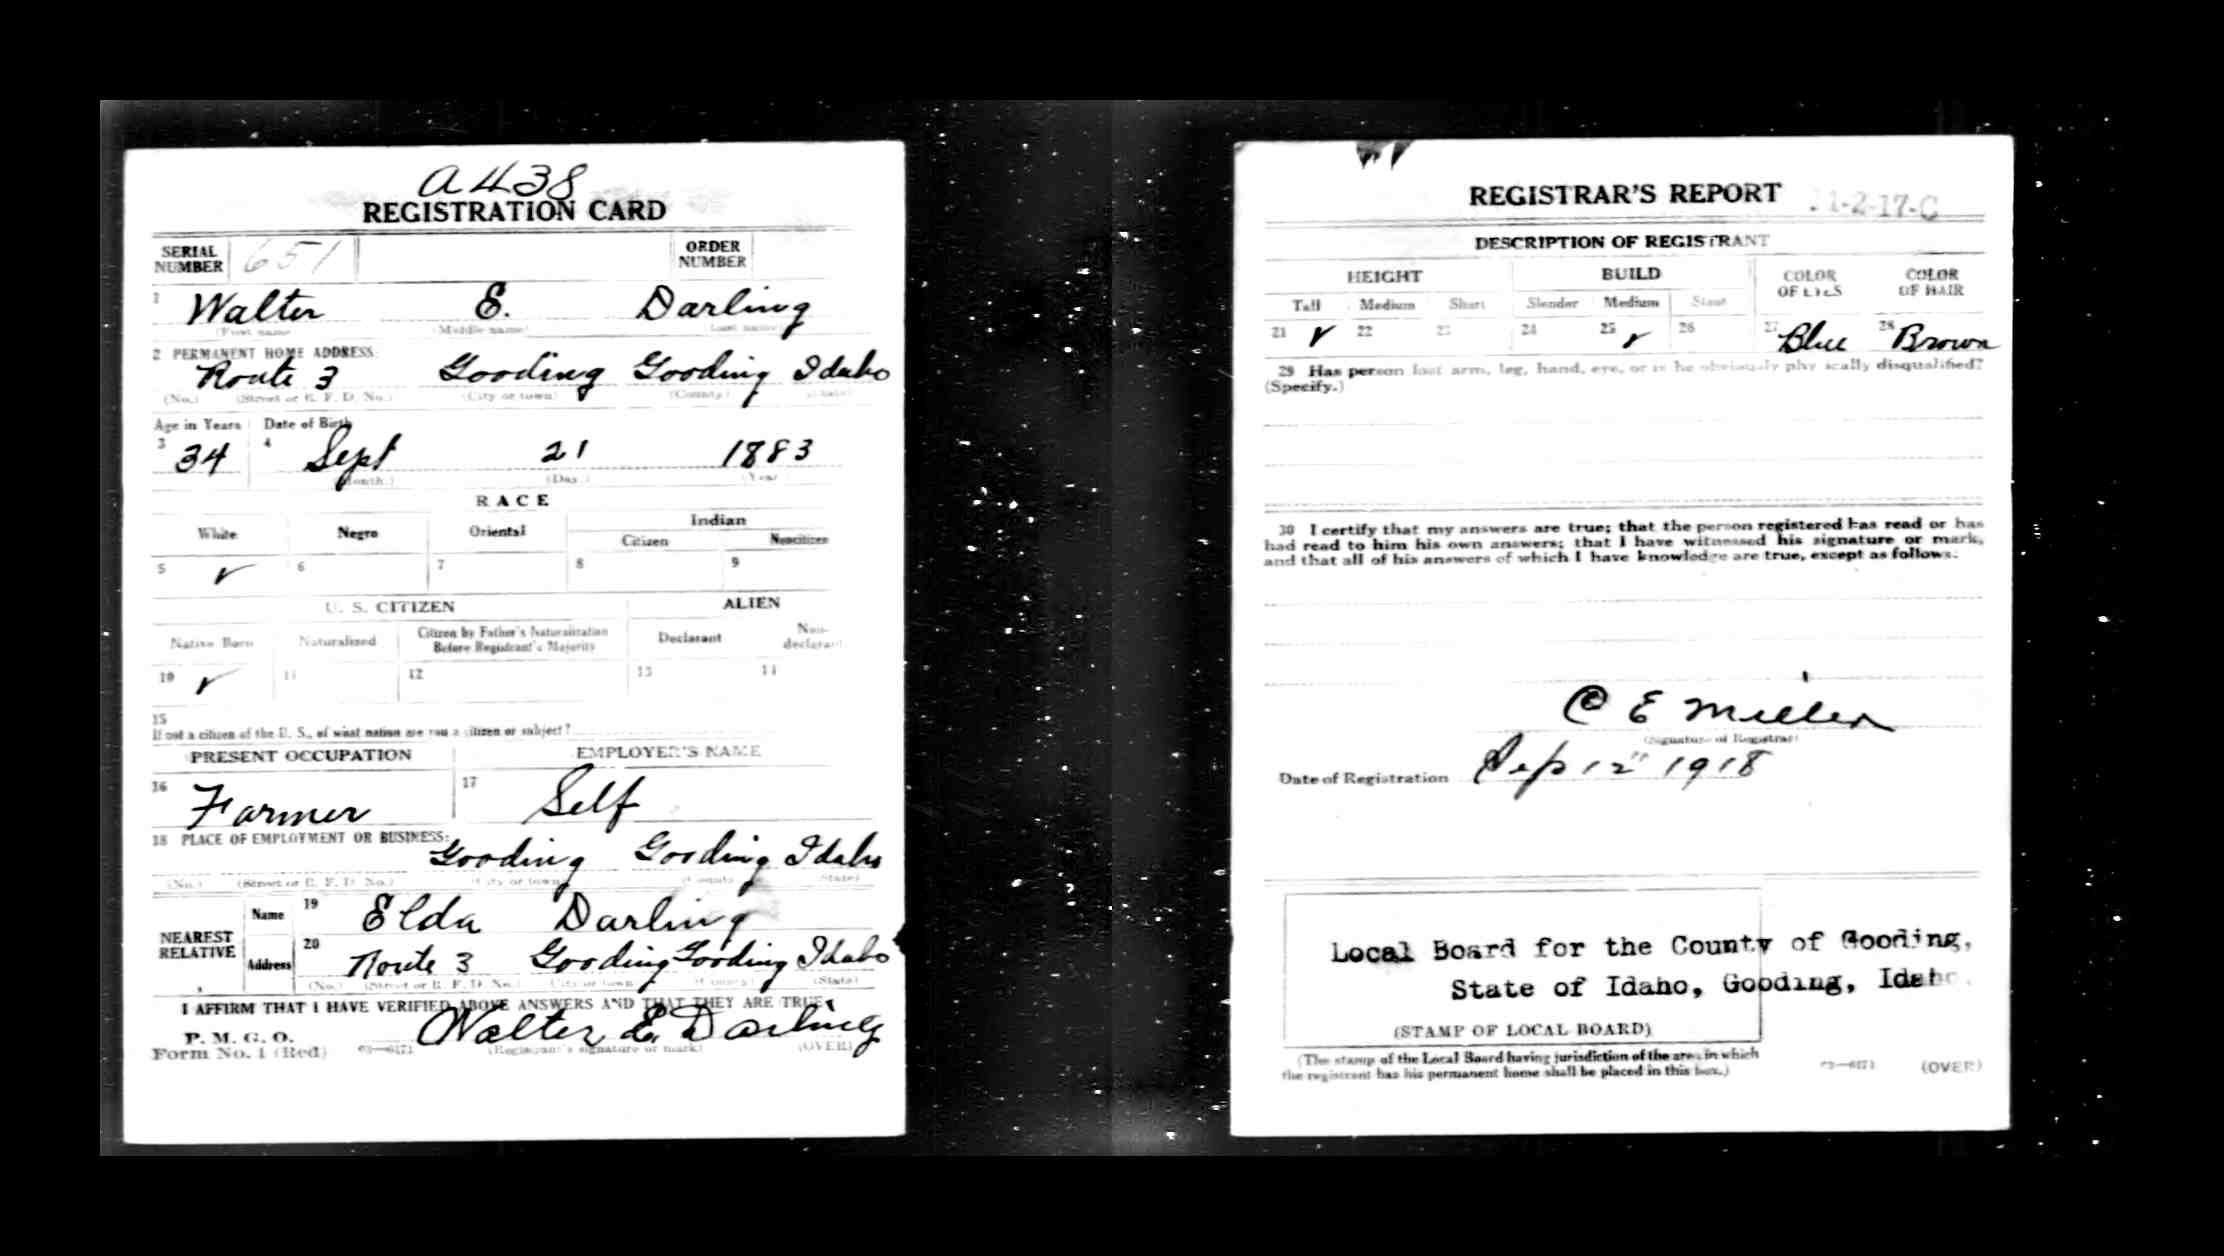 A438
REGISTRATION CARD
SERIAL NUMBER 651 ORDER NUMBER
1 Walter E. Darling
(First name) (Middle name) (Last name)
2 PERMANENT HOME ADDRESS:
Route 3 Gooding Gooding Idaho
(No.) (Street or R. F. D. No.) (City or town) (County) (State)
Age in Years Date of Birth
3 34 4 Sept 21 1883
(Month.) (Day.) (Year)
RACE
White Negro Oriental Indian
Citizen Noncitizen
5 ✓ 6 7 8 9
U. S. CITIZEN ALIEN
Native Born Naturalized Citizen by Father's Naturalization Before Registrant's Majority Declarant Non-declarant
10 ✓ 11 12 13 14
15
If not a citizen of the U. S., of what nation are you a citizen or subject?
PRESENT OCCUPATION EMPLOYER'S NAME
16 Farmer 17 Self
18 PLACE OF EMPLOYMENT OR BUSINESS:
Gooding Gooding Idaho
(No.) (Street or R. F. D. No.) (City or town) (County) (State)
NEAREST RELATIVE Name 19 Elda Darling
Address 20 Route 3 Gooding Gooding Idaho
(No.) (Street or R. F. D. No.) (City or town) (County) (State)
I AFFIRM THAT I HAVE VERIFIED ABOVE ANSWERS AND THAT THEY ARE TRUE
P. M. G. O.
Form No. 1 (Red) 03—6171 Walter E. Darling
(Registrant's signature or mark) (OVER)
REGISTRAR'S REPORT 1-2-17-C
DESCRIPTION OF REGISTRANT
HEIGHT BUILD COLOR OF EYES COLOR OF HAIR
Tall Medium Short Slender Medium Stout
21 ✓ 22 23 24 25 ✓ 26 27 Blue 28 Brown
29 Has person lost arm, leg, hand, eye, or is he obviously physically disqualified?
(Specify.)
30 I certify that my answers are true; that the person registered has read or has
had read to him his own answers; that I have witnessed his signature or mark,
and that all of his answers of which I have knowledge are true, except as follows:
C E Miller
(Signature of Registrar)
Date of Registration Sep 12" 1918
Local Board for the County of Gooding,
State of Idaho, Gooding, Idaho.
(STAMP OF LOCAL BOARD)
(The stamp of the Local Board having jurisdiction of the area in which
the registrant has his permanent home shall be placed in this box.)
03—6171 (OVER)